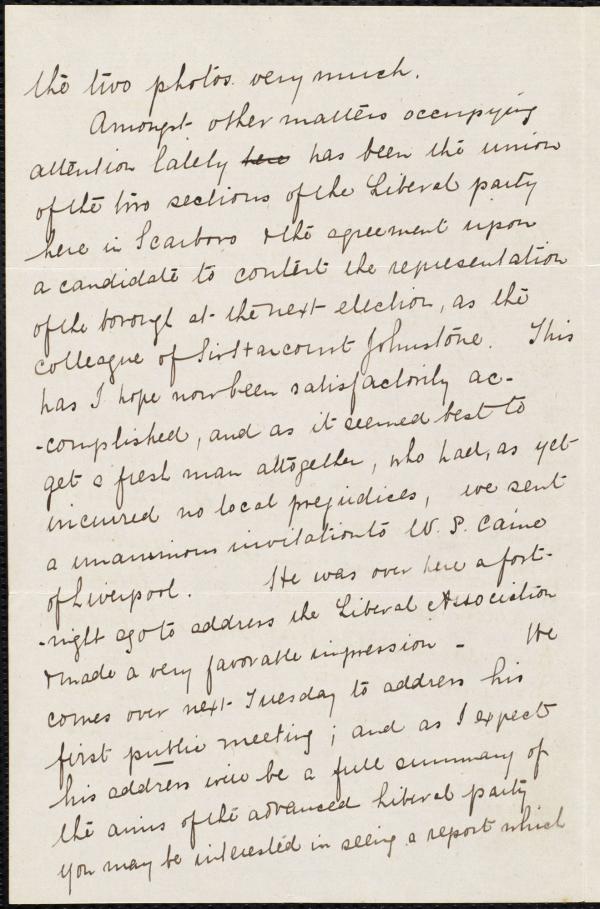 the two photos very much.
Amongst other matters occupying
attention lately here has been the union
of the two sections of the Liberal party
here in Scarboro & the agreement upon
a candidate to contest the representation
of the borough at the next election, as the
colleague of Sir Harcourt Johnstone. This
has I hope now been satisfactorily ac-
-complished, and as it seemed best to
get a fresh man altogether, who had, as yet
incurred no local prejudices, we sent
a unanimous invitation to W. S. Caine
of Liverpool. He was over here a fort-
-night ago to address the Liberal Association
& made a very favorable impression - He
comes over next Tuesday to address his
first public meeting; and as I expect
his address will be a full summary of
the aims of the advanced Liberal party
you may be interested in seeing a report which